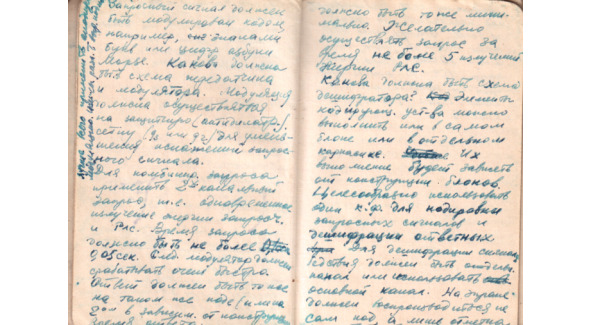 Запросный сигнал должен
быть модулирован кодом,
например, сигналами
букв или цифр азбуки
Морзе. Какова должна
быть схема передатчика
и модулятора. Модуляция
должна осуществляться
на защитную (антидинатр.)
сетку для умень-
шения искажения запрос-
ного сигнала.
Для комбинир. запроса
применить 2х канальный
запрос, т.е. одновременное
излучение энергии запросч.
и Рлс. Время запроса
должно быть не более
0,05 сек. След. модулятор должен
срабатывать очень быстро.
Ответ должен быть тоже
на таком же коде
в зависим. от конструкции
время ответа
должно быть тоже мини-
мально. Желательно
осуществлять запрос за
время не более 5 излучений
энергии Рлс.
Какова должна быть схема
дешифратора? Элементы
кодирующ. устр-ва можно
выполнить или в самом
блоке или в отдельном
карманчике. Их
выполнение будет зависеть
от конструкции блоков.
Целесообразно использовать
один к.ф. для кодировки
запросных сигналов и
дешифрации ответных
Для дешифрации
должен быть отдельн.
канал или использовать
основной канал. На экране
должен воспроизводиться не
сам код а лишь отметка